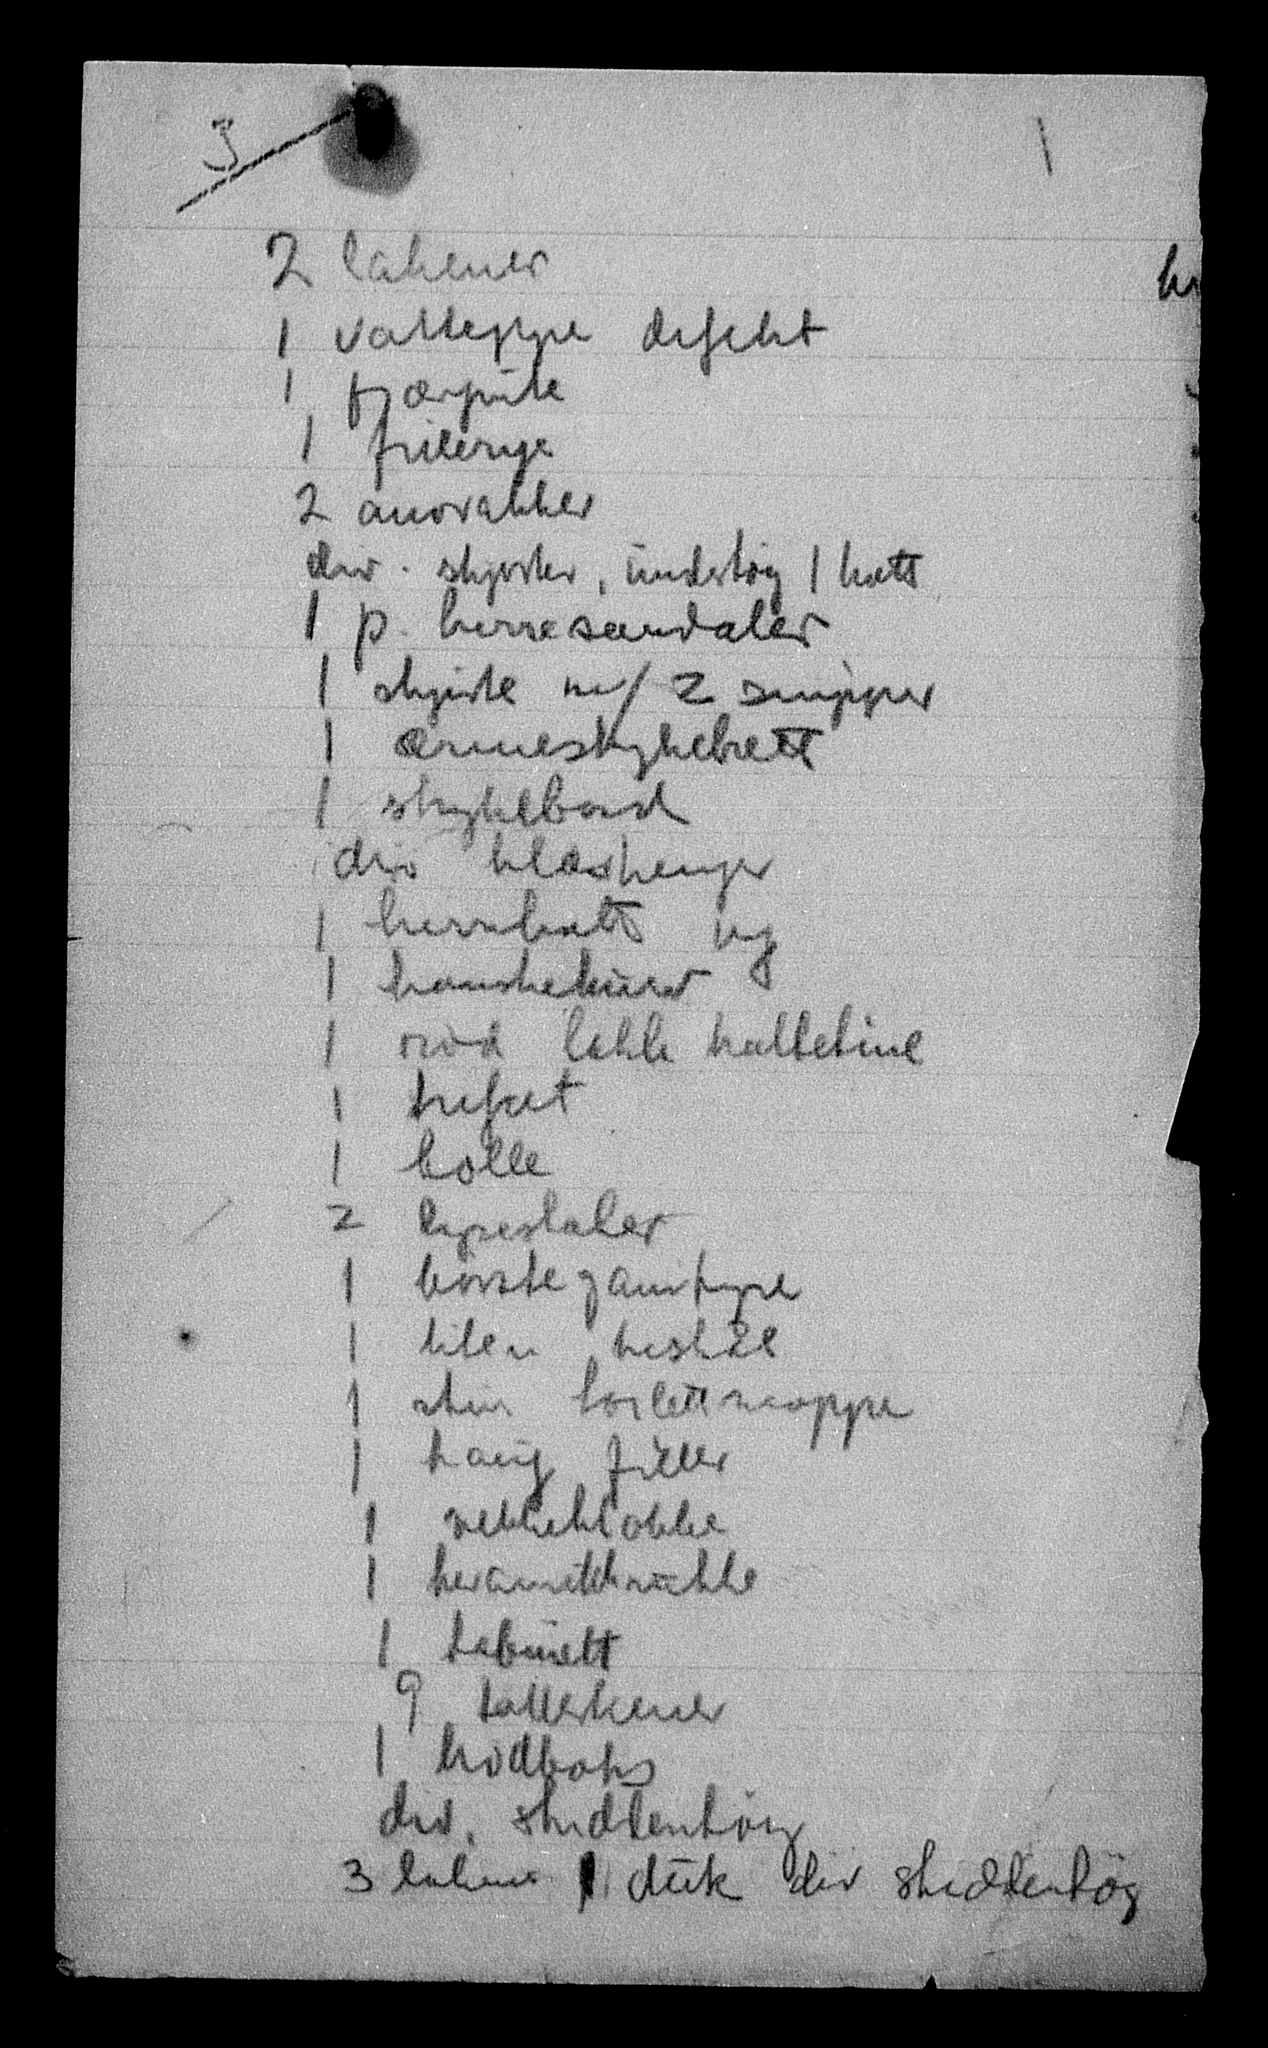 3 1
2 lakener
1 vatteppe defekt
1 fjærpute
1 fillerye
2 anorakker
div. skjorter, undertøy 1 hatt
1 p. herresandaler
1 skjorte m/ 2 snipper
1 ærmestrykebrett
1 strykebord
div klæshenger
1 herrehatt ny
1 hanskekurv
1 rød lakk hattetine
1 trefat
1 bolle
2 lysestaker
1 børstegarnityre
1 liten
1 skin toilettmappe
1 haug filler
1 vekkeklokke
1 keramikkrukke
1 kabinett
9 tallerkener
1 brødboks
div. skiddentøy
3 lakene 1 duk div skiddentøy